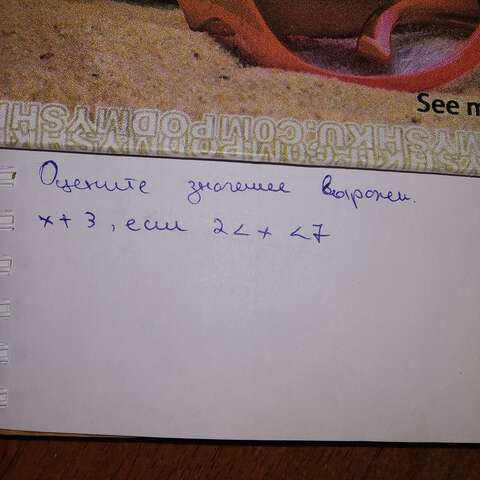 See m
MYSHKU.COMPODMYSHKU.COM
Оцените значение выражен.
x + 3, если 2 < x < 7